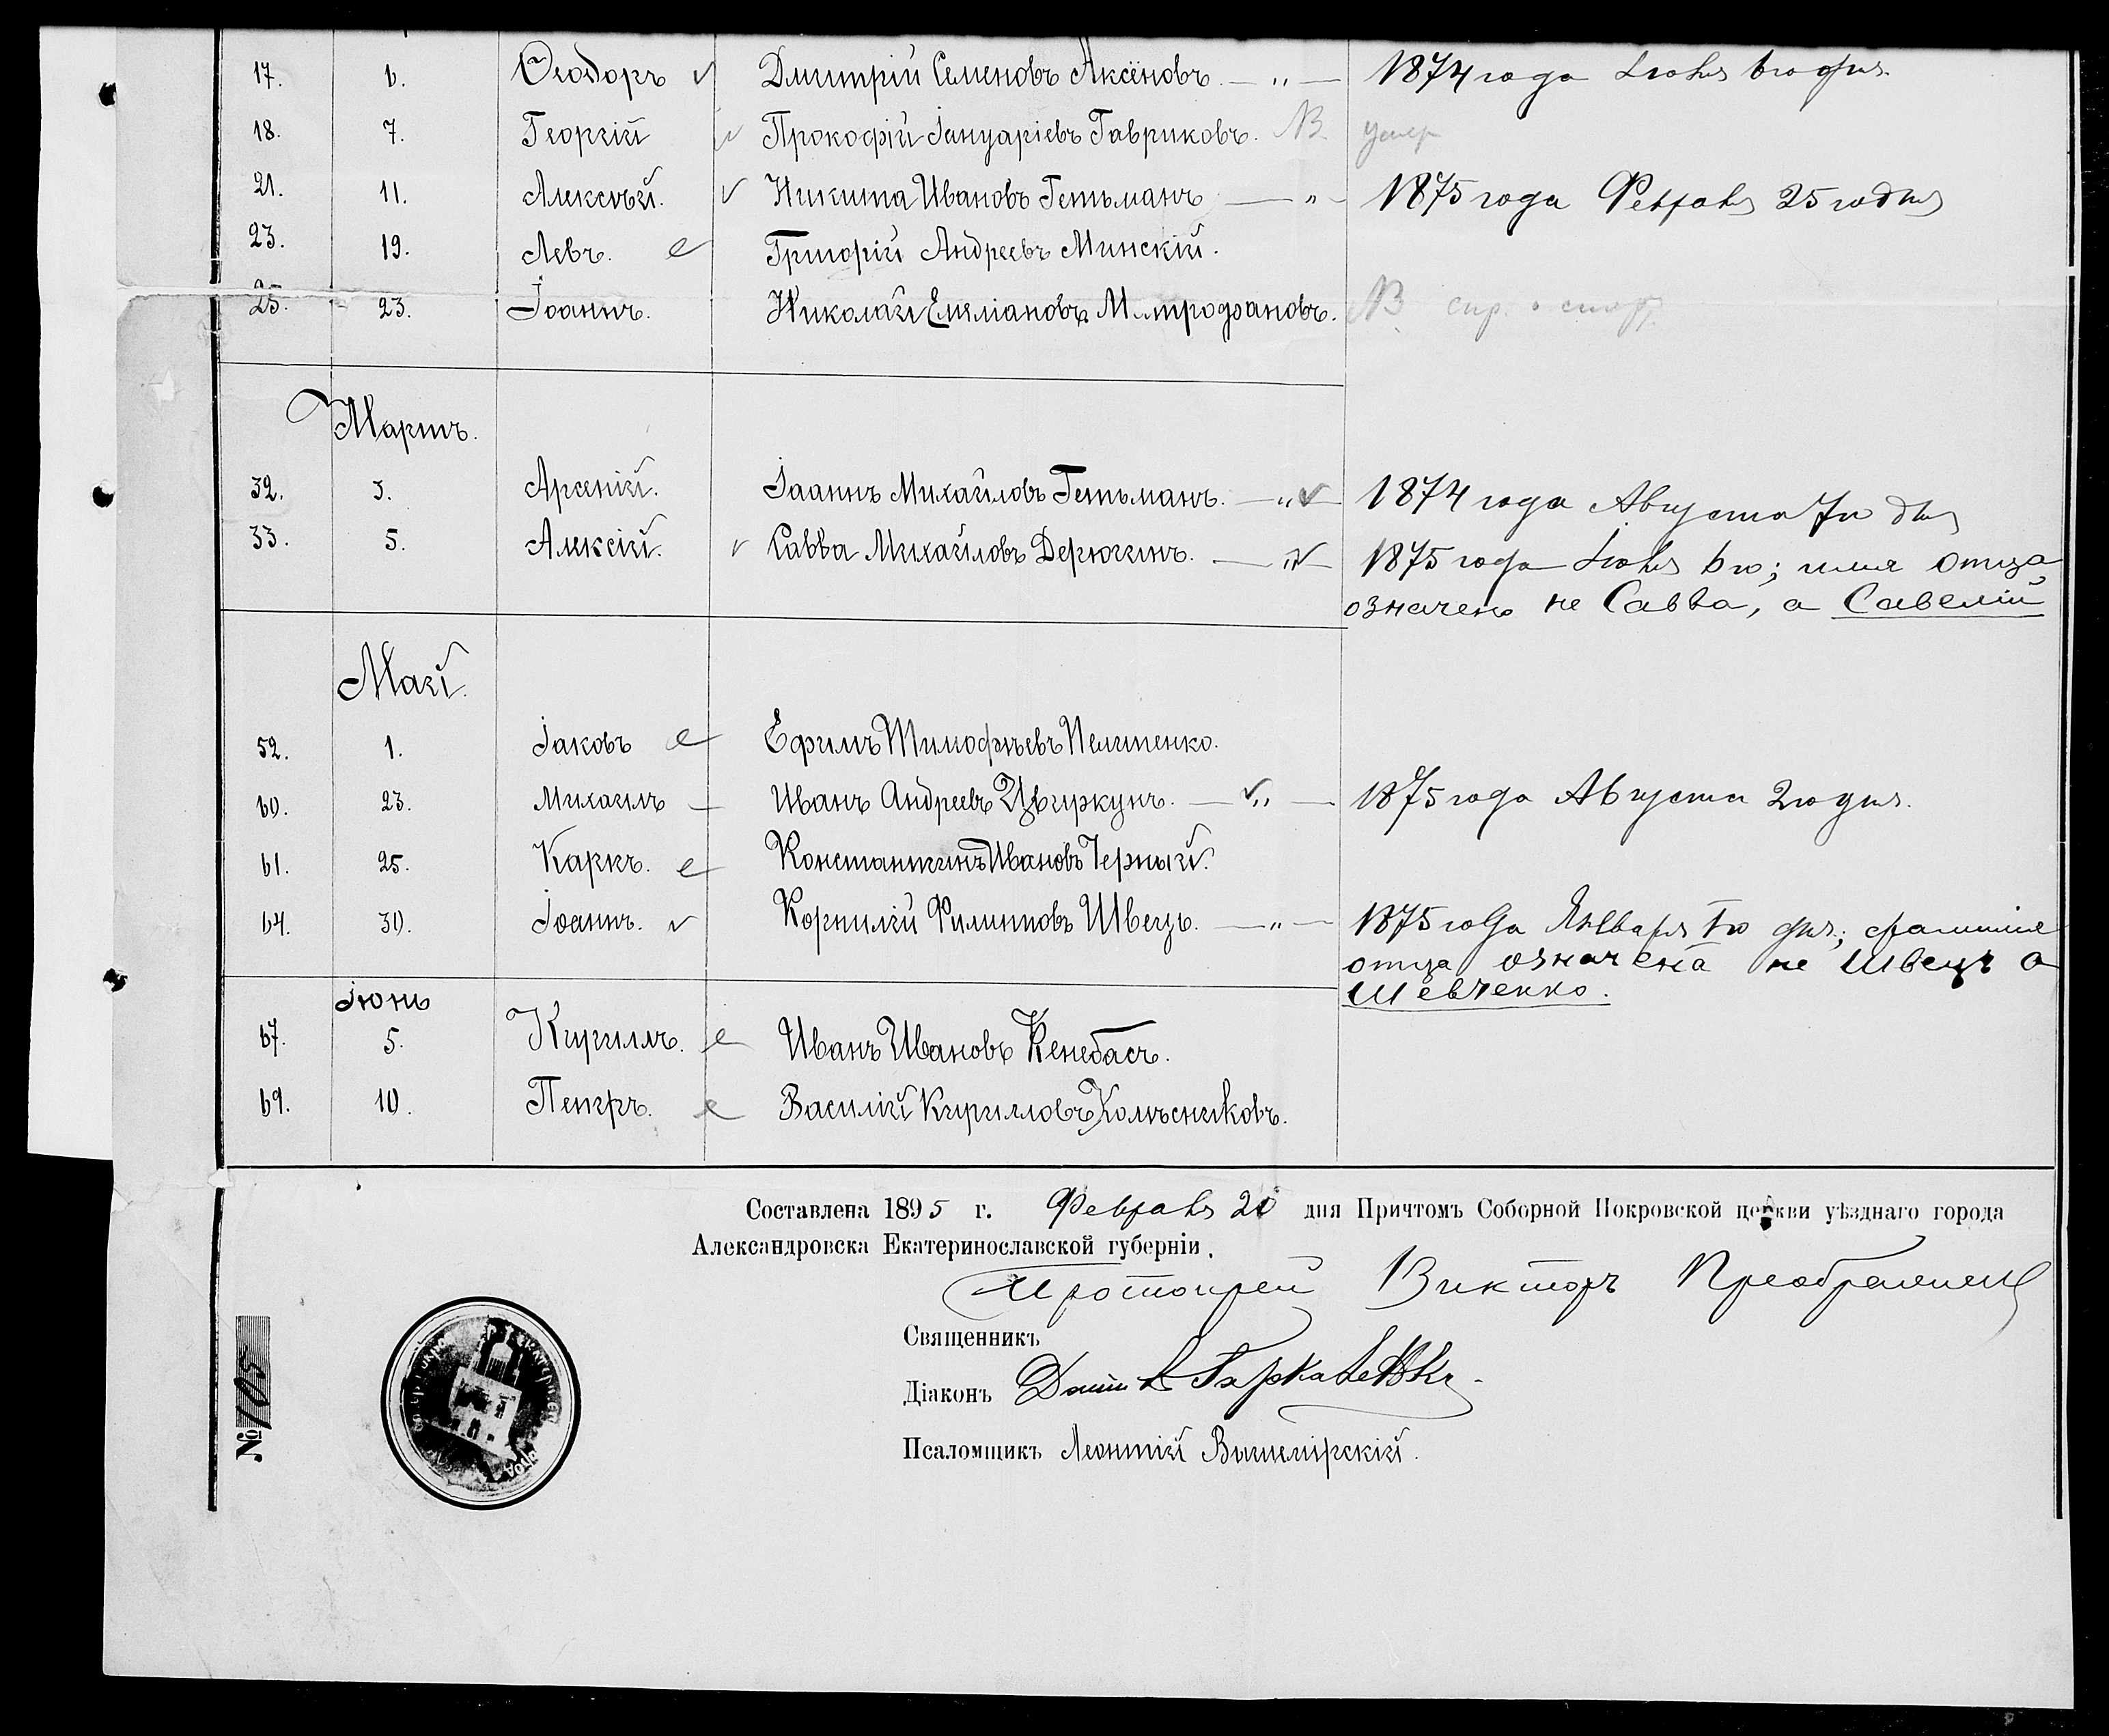 17. 6. Ѳеодоръ Дмитрій Семеновъ Аксёновъ. — „ — 1874 года Іюня 6го дня.
18. 7. Георгій Прокофій Іануаріевъ Гавриковъ. NB. умер
21. 11. Алексѣй. Никита Ивановъ Гетьманъ — „ - 1875 года Февраля 25 го дня
23. 19. Левъ. Григорій Андреевъ Минскій.
25. 23. Іоаннъ. Николай Емеліановъ Митрофановъ. NB
Мартъ.
32. 3. Арсеній. Іааннъ Михайловъ Гетьманъ. — „ — 1874 года Августа 7го дня
33. 5. Алексій. Савва Михайловъ Дерюгинъ. — „ — 1875 года Іюня 6го; имя отца
означено не Савва, а Савелій
Май.
52. 1. Іаковъ Ефимъ Тимофѣевъ Пелипенко.
60. 23. Михаилъ — Иванъ Андреевъ Цвиркунъ. — „ — 1875 года Августа 2го дня.
61. 25. Каркъ. Константинъ Ивановъ Черный.
64. 30. Іоаннъ. Корнилій Филиповъ Швецъ. — „ — 1875 года Января дня; фамилия
отца означена не Швецъ а
Шевченко.
Іюнь
67. 5. Кириллъ. Иванъ Ивановъ Кенебасъ.
69. 10. Петръ. Василій Кирилловъ Колѣсниковъ.
Составлена 1895 г. Февраля 20 дня Причтомъ Соборной Покровской церкви уѣзднаго города
Александровска Екатеринославской губерніи.
Протоиерей Викторъ Преображенск
Священникъ
Діаконъ
Псаломщикъ Леонтій Вышемірскій.
№ 105